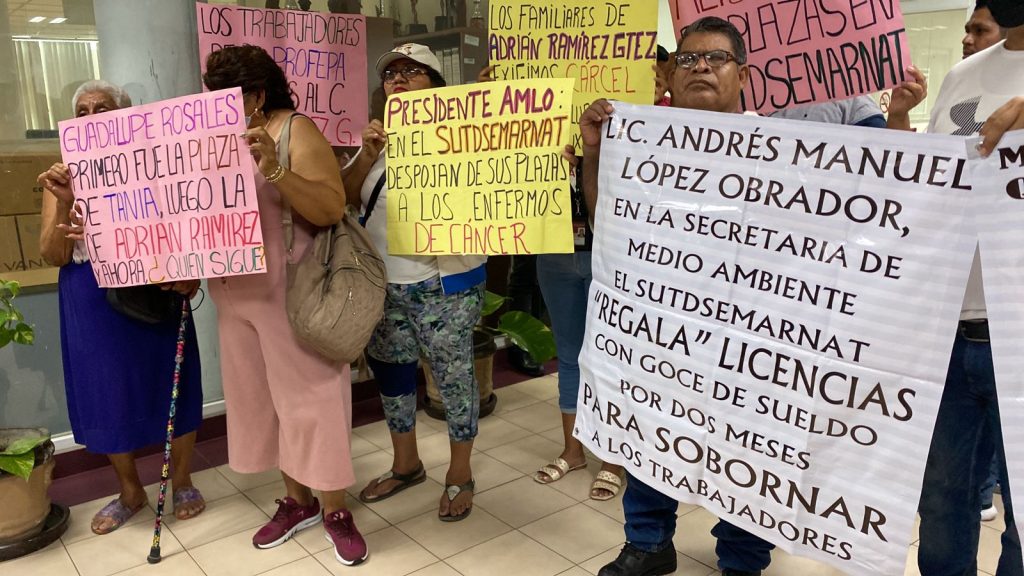 GUADALUPE ROSALES
PRIMERO FUE LA PLAZA
DE TANIA, LUEGO LA
DE ADRIAN RAMIREZ
Y AHORA ¿QUIEN SIGUE?
LOS TRABAJADORES
PROFEPA
AL C.
Z G.
PRESIDENTE AMLO:
EN EL SUTDSEMARNAT
DESPOJAN DE SUS PLAZAS
A LOS ENFERMOS
DE CÁNCER
LOS FAMILIARES DE
ADRIÁN RAMÍREZ GTEZ
EXIGIMOS CÁRCEL
PLAZAS EN
SUTDSEMARNAT
LIC. ANDRÉS MANUEL
LÓPEZ OBRADOR,
EN LA SECRETARIA DE
MEDIO AMBIENTE
EL SUTDSEMARNAT
"REGALA" LICENCIAS
CON GOCE DE SUELDO
POR DOS MESES
PARA SOBORNAR
A LOS TRABAJADORES